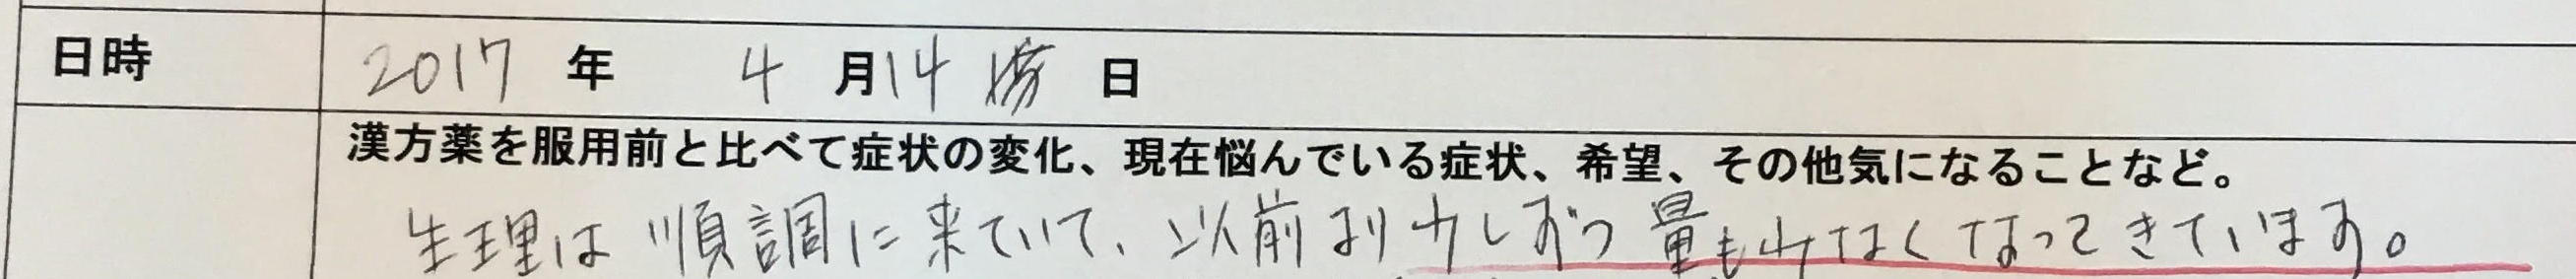 日時 2017 年 4 月 14 日
漢方薬を服用前と比べて症状の変化、現在悩んでいる症状、希望、その他気になることなど。
生理は順調に来ていて、以前より少しずつ量も少なくなってきています。